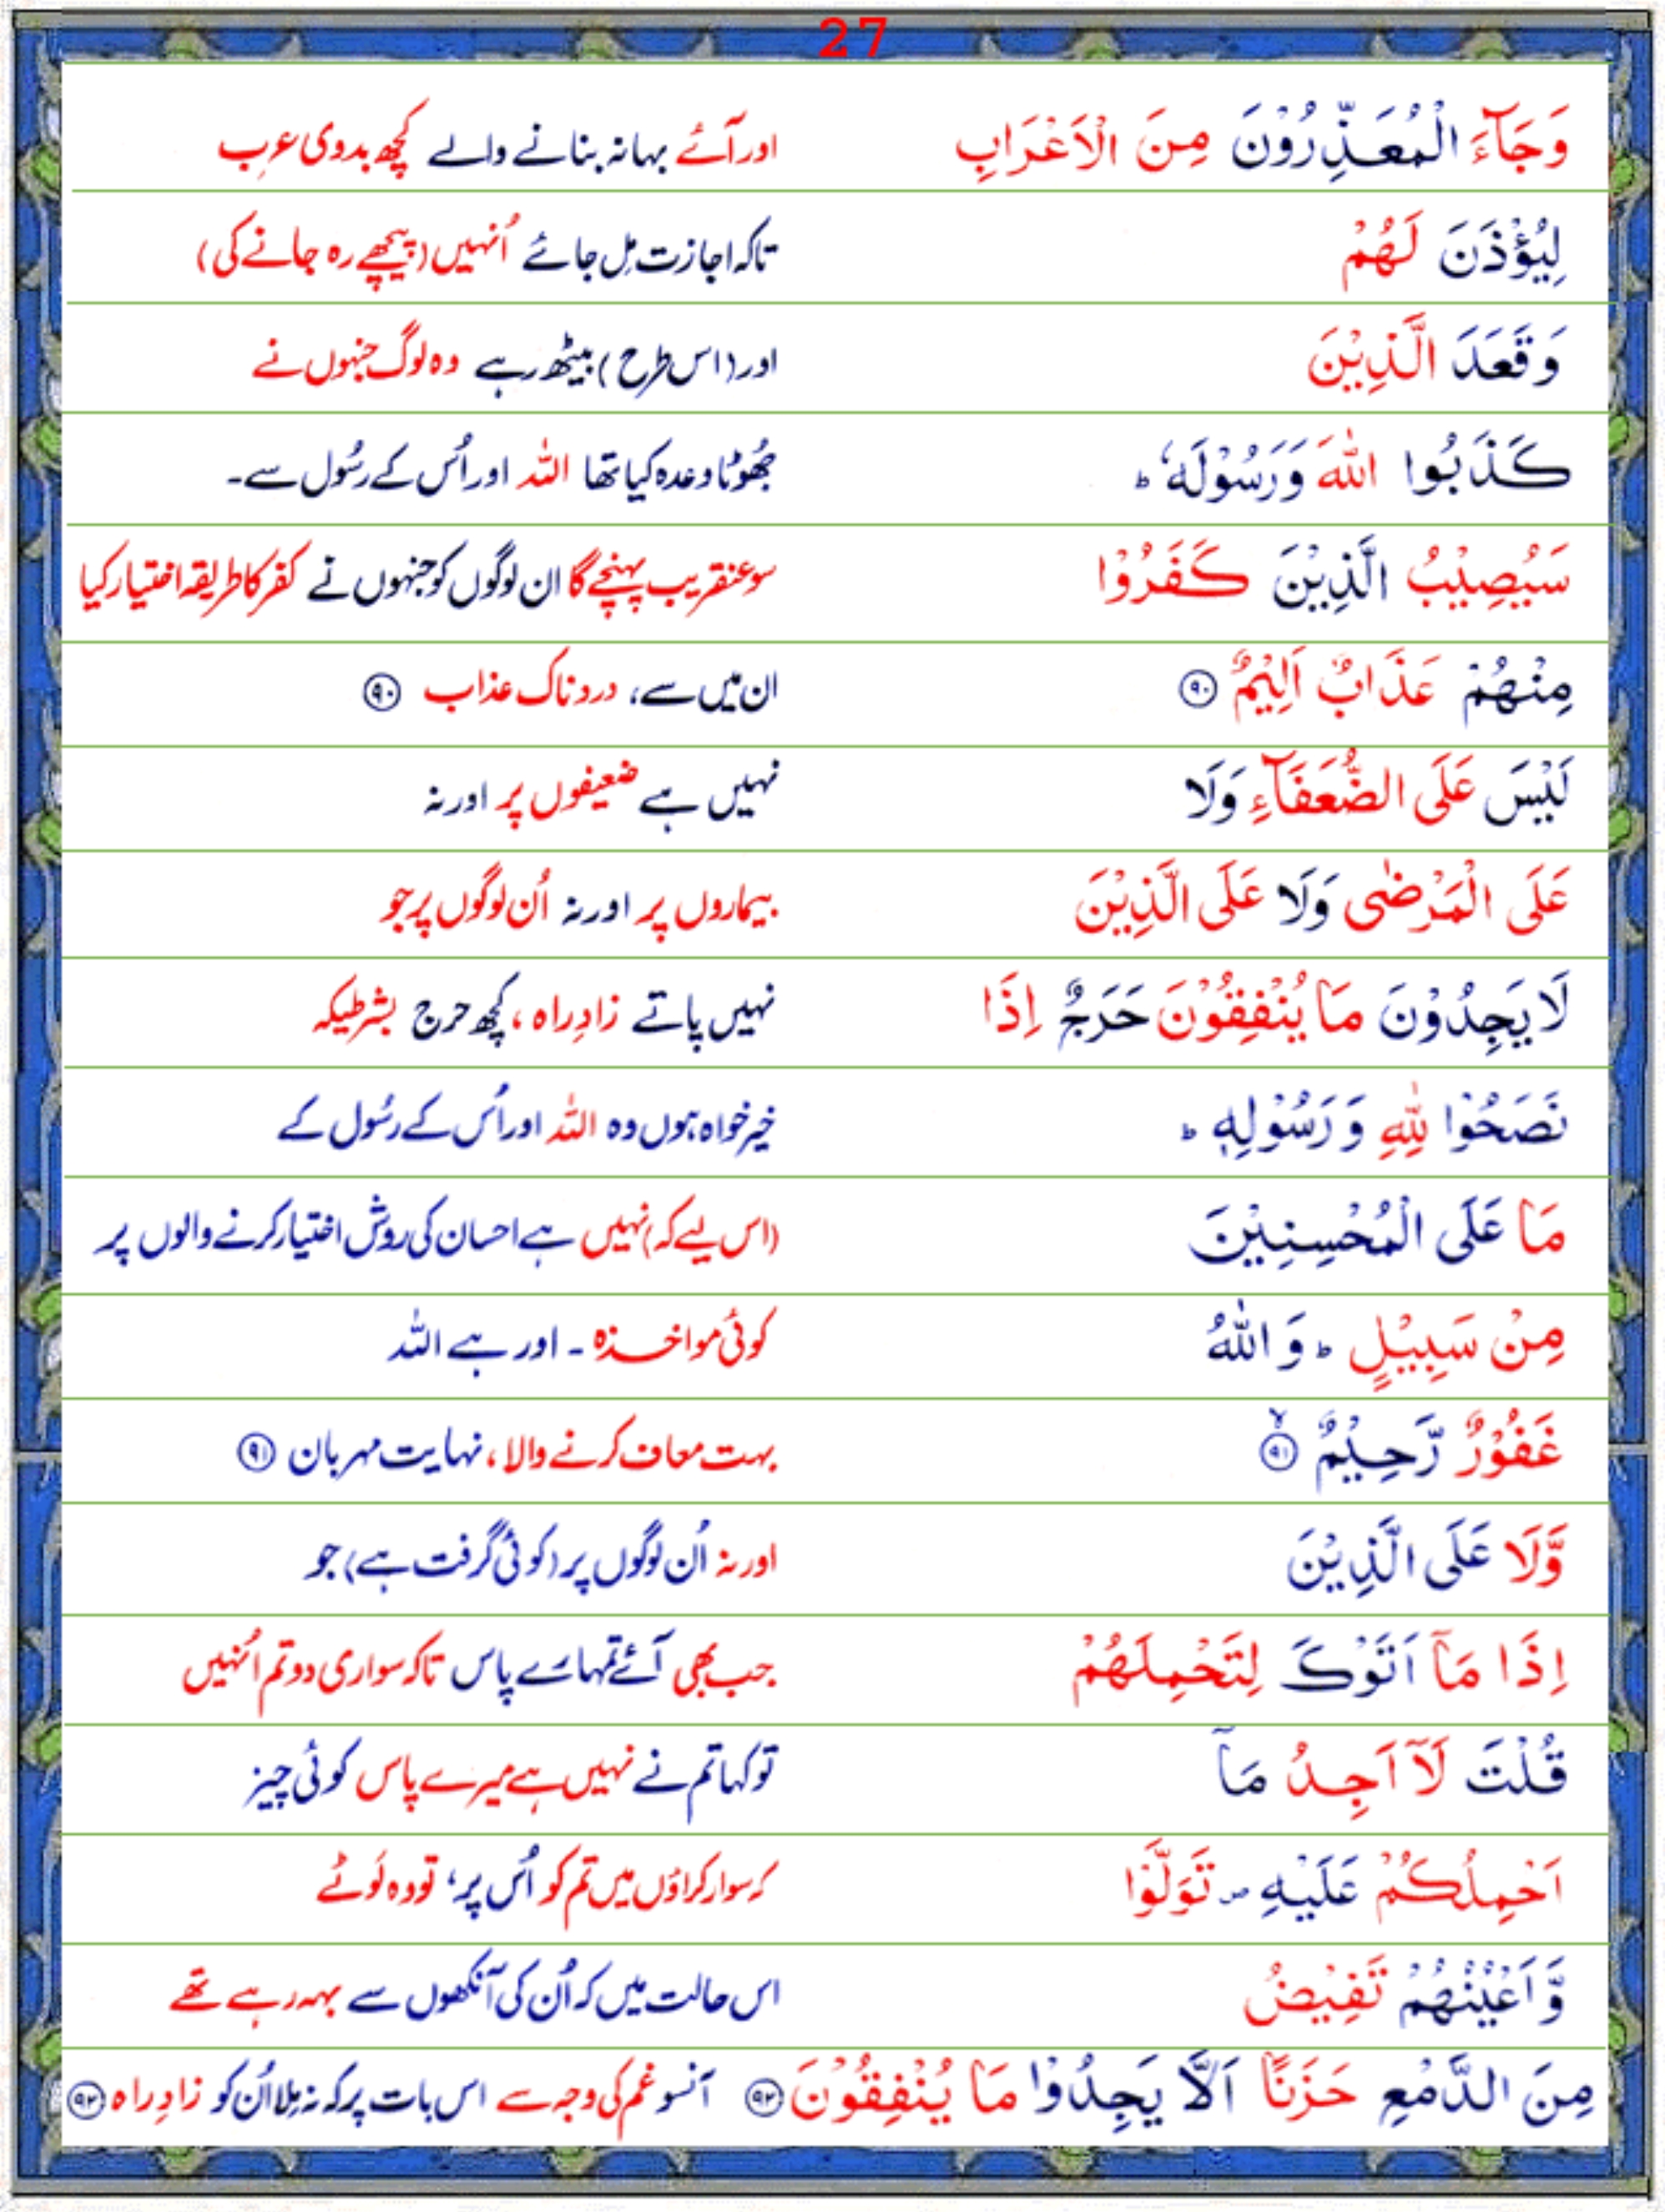 27
وَجَآءَ الْمُعَذِّرُوْنَ مِنَ الْاَعْرَابِ اور آئے بہانہ بنانے والے کچھ بدوی عرب
لِيُؤْذَنَ لَهُمْ تاکہ اجازت مل جائے اُنہیں (پیچھے رہ جانے کی)
وَقَعَدَ الَّذِيْنَ اور (اس طرح) بیٹھ رہے وہ لوگ جنہوں نے
كَذَبُوا اللّٰهَ وَرَسُوْلَهٗ ؕ جھُوٹا وعدہ کیا تھا اللہ اور اُس کے رسُول سے۔
سَيُصِيْبُ الَّذِيْنَ كَفَرُوْا سو عنقریب پہنچے گا ان لوگوں کو جنہوں نے کفر کا طریقہ اختیار کیا
مِنْهُمْ عَذَابٌ اَلِيْمٌ ۹۰ ان میں سے، دردناک عذاب ۹۰
لَيْسَ عَلَى الضُّعَفَآءِ وَلَا نہیں ہے ضعیفوں پر اور نہ
عَلَى الْمَرْضٰى وَلَا عَلَى الَّذِيْنَ بیماروں پر اور نہ اُن لوگوں پر جو
لَا يَجِدُوْنَ مَا يُنْفِقُوْنَ حَرَجٌ اِذَا نہیں پاتے زادِ راہ، کچھ حرج بشرطیکہ
نَصَحُوْا لِلّٰهِ وَرَسُوْلِهٖ ؕ خیر خواہ ہوں وہ اللہ اور اُس کے رسُول کے
مَا عَلَى الْمُحْسِنِيْنَ (اس لیے کہ) نہیں ہے احسان کی روش اختیار کرنے والوں پر
مِنْ سَبِيْلٍ ؕ وَاللّٰهُ کوئی مواخذہ۔ اور ہے اللہ
غَفُوْرٌ رَّحِيْمٌ ۙ ۹۱ بہت معاف کرنے والا، نہایت مہربان ۹۱
وَّلَا عَلَى الَّذِيْنَ اور نہ اُن لوگوں پر (کوئی گرفت ہے) جو
اِذَا مَآ اَتَوْكَ لِتَحْمِلَهُمْ جب بھی آئے تمہارے پاس تاکہ سواری دو تم اُنہیں
قُلْتَ لَآ اَجِدُ مَآ تو کہا تم نے نہیں ہے میرے پاس کوئی چیز
اَحْمِلُكُمْ عَلَيْهِ ۪ تَوَلَّوْا کہ سوار کراؤں میں تم کو اُس پر، تو وہ لَوٹے
وَّاَعْيُنُهُمْ تَفِيْضُ اس حالت میں کہ اُن کی آنکھوں سے بہہ رہے تھے
مِنَ الدَّمْعِ حَزَنًا اَلَّا يَجِدُوْا مَا يُنْفِقُوْنَ ۹۲ آنسو غم کی وجہ سے اس بات پر کہ نہ مِلا اُن کو زادِ راہ ۹۲